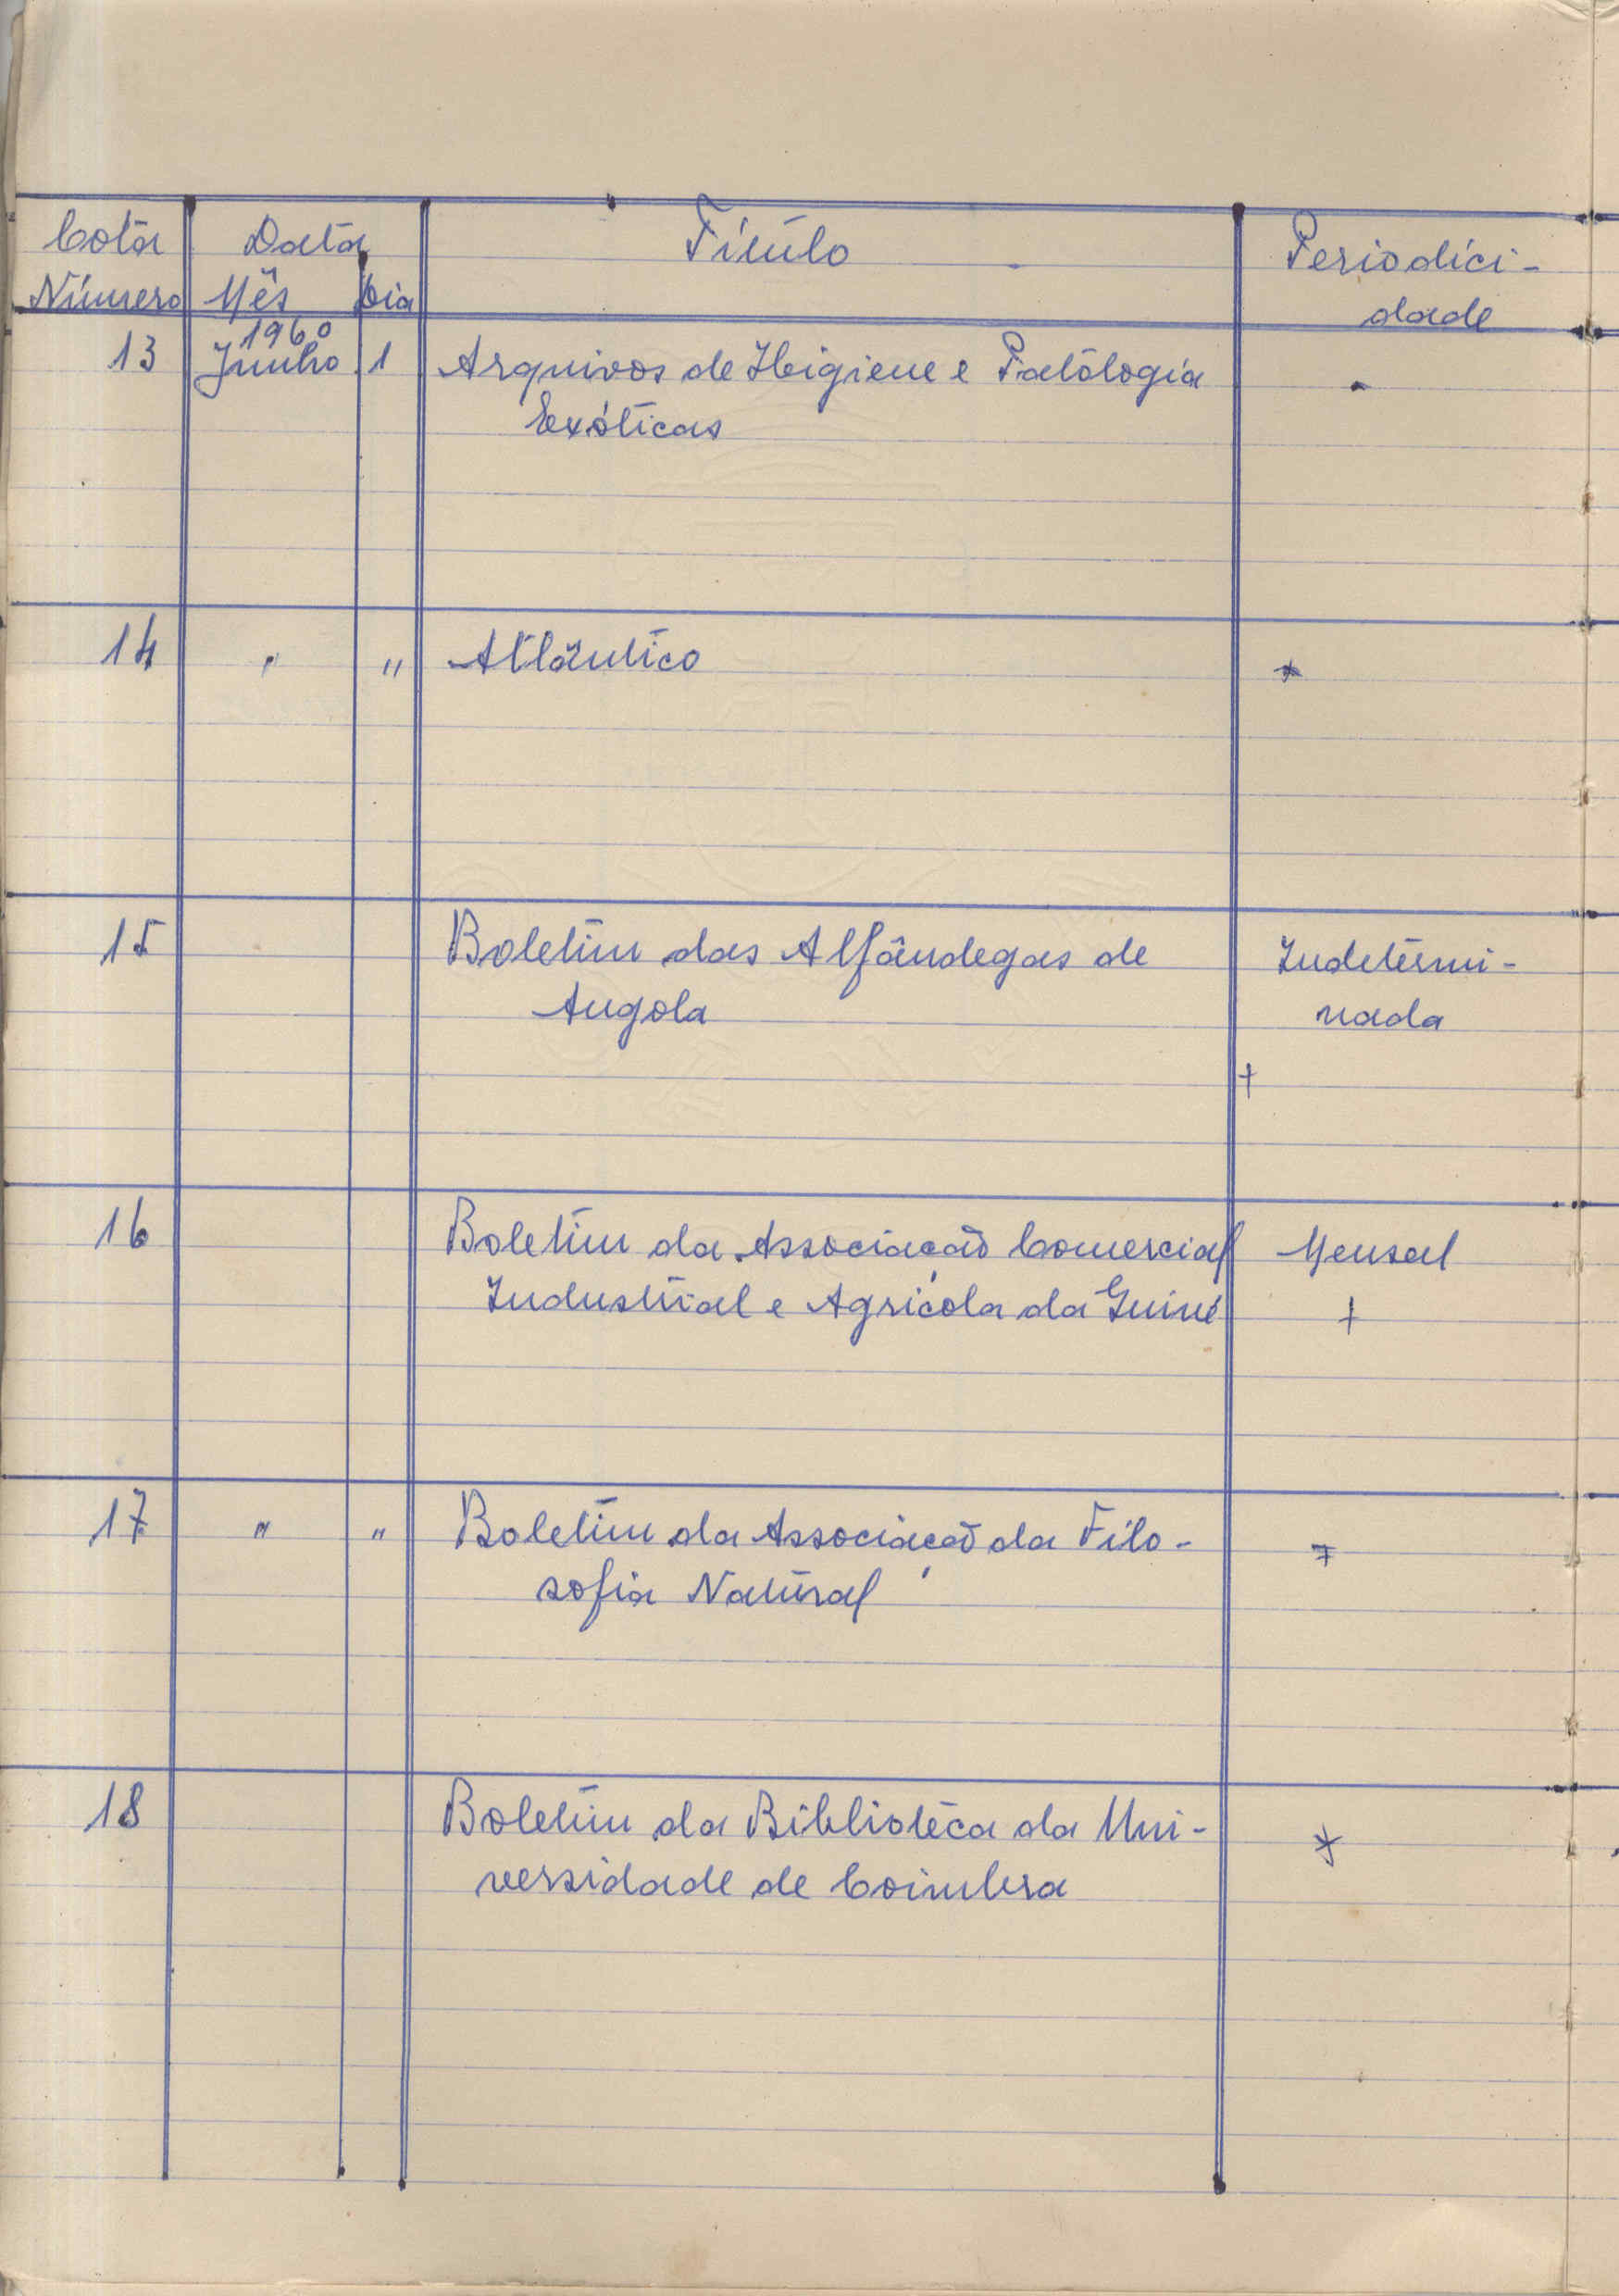 Cota Data Título Periodici-
Número Mês Dia dade
1960
13 Junho 1 Arquivos de Higiene e Patologia -
Exóticas
14 " " Atlântico *
15 Boletim das Alfândegas de Indetermi-
Angola nada
+
16 Boletim da Associação Comercial Mensal
Industrial e Agrícola da Guiné +
17 " " Boletim da Associação da Filo-
sofia Natural
18 Boletim da Biblioteca da Uni- *
versidade de Coimbra